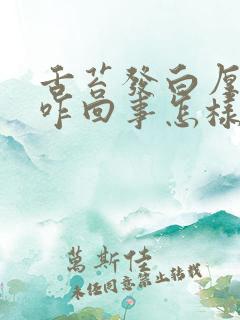 舌苔發白厚
咋回事怎樣
萬斯佳
未经同意禁止转载